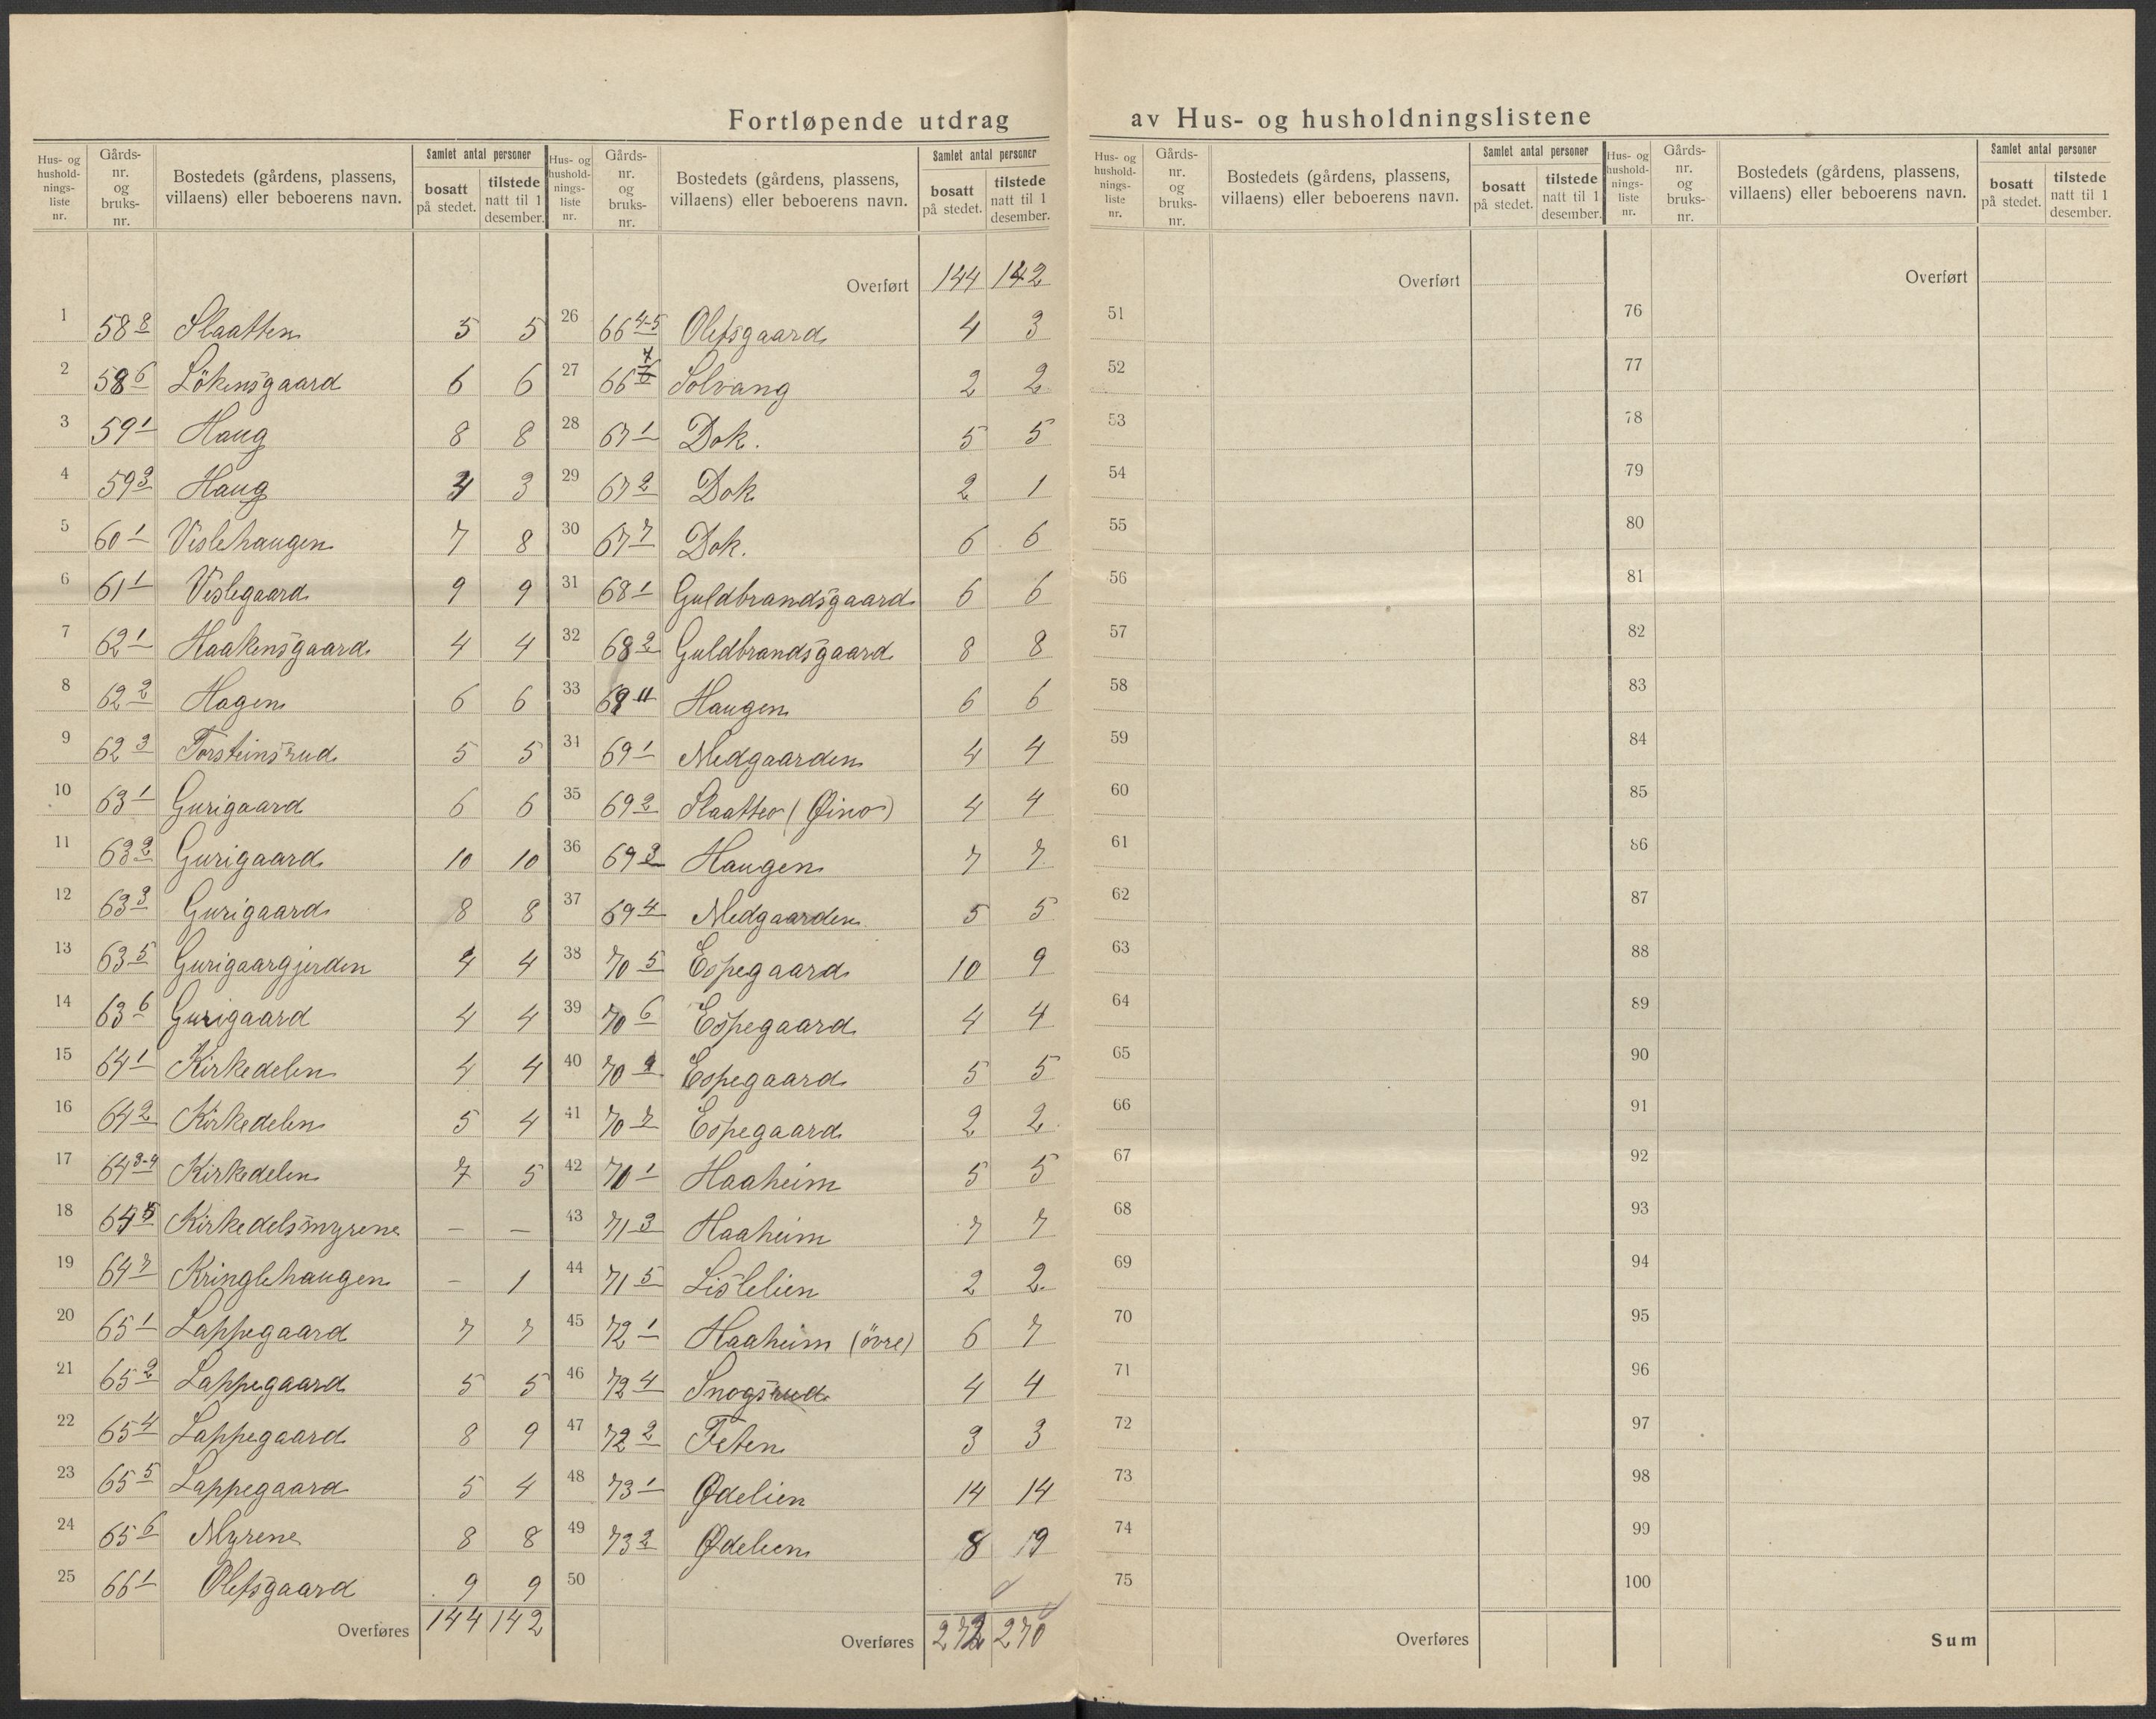 Fortløpende utdrag av Hus- og husholdningslistene
Hus- og husholdnings-liste nr. | Gårds-nr. og bruks-nr. | Bostedets (gårdens, plassens, villaens) eller beboerens navn. | Samlet antal personer: bosatt på stedet. | tilstede natt til 1 desember.
1 58 8 Slaatten 5 5
2 58 6 Lökensgaard 6 6
3 59 1 Haug 8 8
4 59 3 Haug 3
5 60 1 Vislehaugen 7 8
6 61 1 Vislegaard 9 9
7 62 1 Haakensgaard 4 4
8 62 2 Hagen 6 6
9 62 3 Torsteinsrud 5 5
10 63 1 Gurigaard 6 6
11 63 2 Gurigaard 10 10
12 63 3 Gurigaard 8 8
13 63 5 Gurigaargjerden 4 4
14 63 6 Gurigaard 4 4
15 64 1 Kirkedelen 4 4
16 64 2 Kirkedelen 5 4
17 64 3-4 Kirkedelen 7 5
18 64 5 Kirkedelsmyrene – –
19 64 7 Kringlehaugen – 1
20 65 1 Lappegaard 7 7
21 65 2 Lappegaard 5 5
22 65 4 Lappegaard 8 9
23 65 5 Lappegaard 5 4
24 65 6 Myrene 8 8
25 66 1 Olefsgaard 9 9
Overføres 144 142
Hus- og husholdnings-liste nr. | Gårds-nr. og bruks-nr. | Bostedets (gårdens, plassens, villaens) eller beboerens navn. | Samlet antal personer: bosatt på stedet. | tilstede natt til 1 desember.
Overført 144 142
26 66 4-5 Olefsgaard 4 3
27 66 7 Solvang 2 2
28 67 1 Dok. 5 5
29 67 2 Dok 2 1
30 67 7 Dok. 6 6
31 68 1 Guldbrandsgaard 6 6
32 68 2 Guldbrandsgaard 8 8
33 68 11 Haugen 6 6
34 69 1 Medgaarden 4 4
35 69 2 Slaatten (Øino) 4 4
36 69 3 Haugen 7 7
37 69 4 Medgaarden 5 5
38 70 5 Espegaard 10 9
39 70 6 Espegaard 4 4
40 70 Espegaard 5 5
41 70 7 Espegaard 2 2
42 71 1 Haaheim 5 5
43 71 3 Haaheim 7 7
44 71 5 Lislelien 2 2
45 72 1 Haaheim (övre) 6 7
46 72 4 Snogsrud 4 4
47 72 2 Feten 3 3
48 73 1 Ødelien 14 14
49 73 2 Ødelien 8 19
50
Overføres 272 270
Hus- og husholdnings-liste nr. | Gårds-nr. og bruks-nr. | Bostedets (gårdens, plassens, villaens) eller beboerens navn. | Samlet antal personer: bosatt på stedet. | tilstede natt til 1 desember.
Overført
51
52
53
54
55
56
57
58
59
60
61
62
63
64
65
66
67
68
69
70
71
72
73
74
75
Overføres
Hus- og husholdnings-liste nr. | Gårds-nr. og bruks-nr. | Bostedets (gårdens, plassens, villaens) eller beboerens navn. | Samlet antal personer: bosatt på stedet. | tilstede natt til 1 desember.
Overført
76
77
78
79
80
81
82
83
84
85
86
87
88
89
90
91
92
93
94
95
96
97
98
99
100
Sum